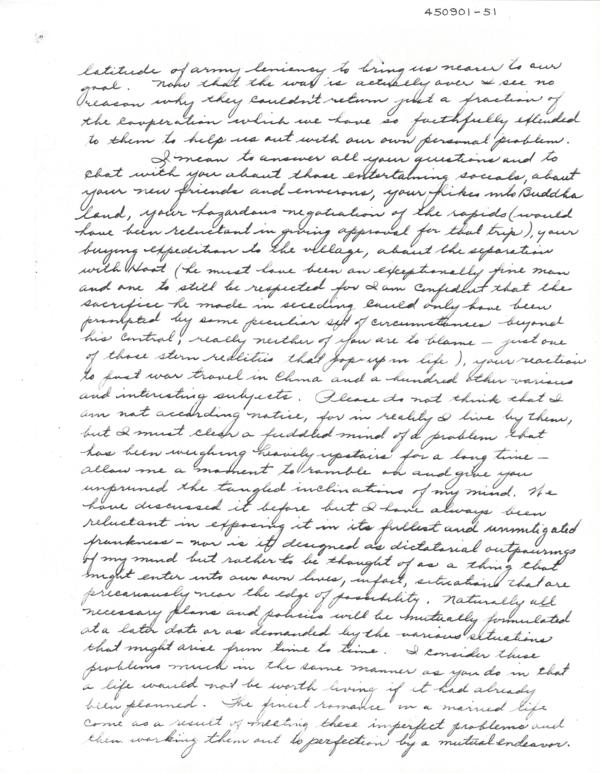 450901-51
latitude of army leniency to bring us nearer to our
goal. Now that the war is actually over I see no
reason why they couldn't return just a fraction of
the cooperation which we have so faithfully extended
to them to help us out with our own personal problem.
I mean to answer all your questions and to
chat with you about those entertaining socials, about
your new friends and environs, your hikes into Buddha
land, your hazardous negotiation of the rapids (would
have been reluctant in giving approval for that trip), your
buying expedition to the village, about the separation
with (he must have been an exceptionally fine man
and one to still be respected for I am confident that the
sacrifice he made in seceding could only have been
prompted by some peculiar set of circumstances beyond
his control; really neither of you are to blame – just one
of those stern realities that pop-up in life), your reaction
to post war travel in China and a hundred other various
and interesting subjects. Please do not think that I
am not according notice, for in reality I live by them,
but I must clear a fuddled mind of a problem that
has been weighing heavily upstairs for a long time –
allow me a moment to ramble on and give you
unpruned the tangled inclinations of my mind. We
have discussed it before but I have always been
reluctant in exposing it in its fullest and unmitigated
frankness – nor is it designed as dictatorial outpourings
of my mind but rather to be thought of as a thing that
might enter into our own lives, infact, situations that are
precariously near the edge of possibility. Naturally all
necessary plans and policies will be mutually formulated
at a later date or as demanded by the various situations
that might arise from time to time. I consider these
problems much in the same manner as you do in that
a life would not be worth living if it had already
been planned. The finest romance in a married life
come as a result of meeting these imperfect problems and
then working them out to perfection by a mutual endeavor.